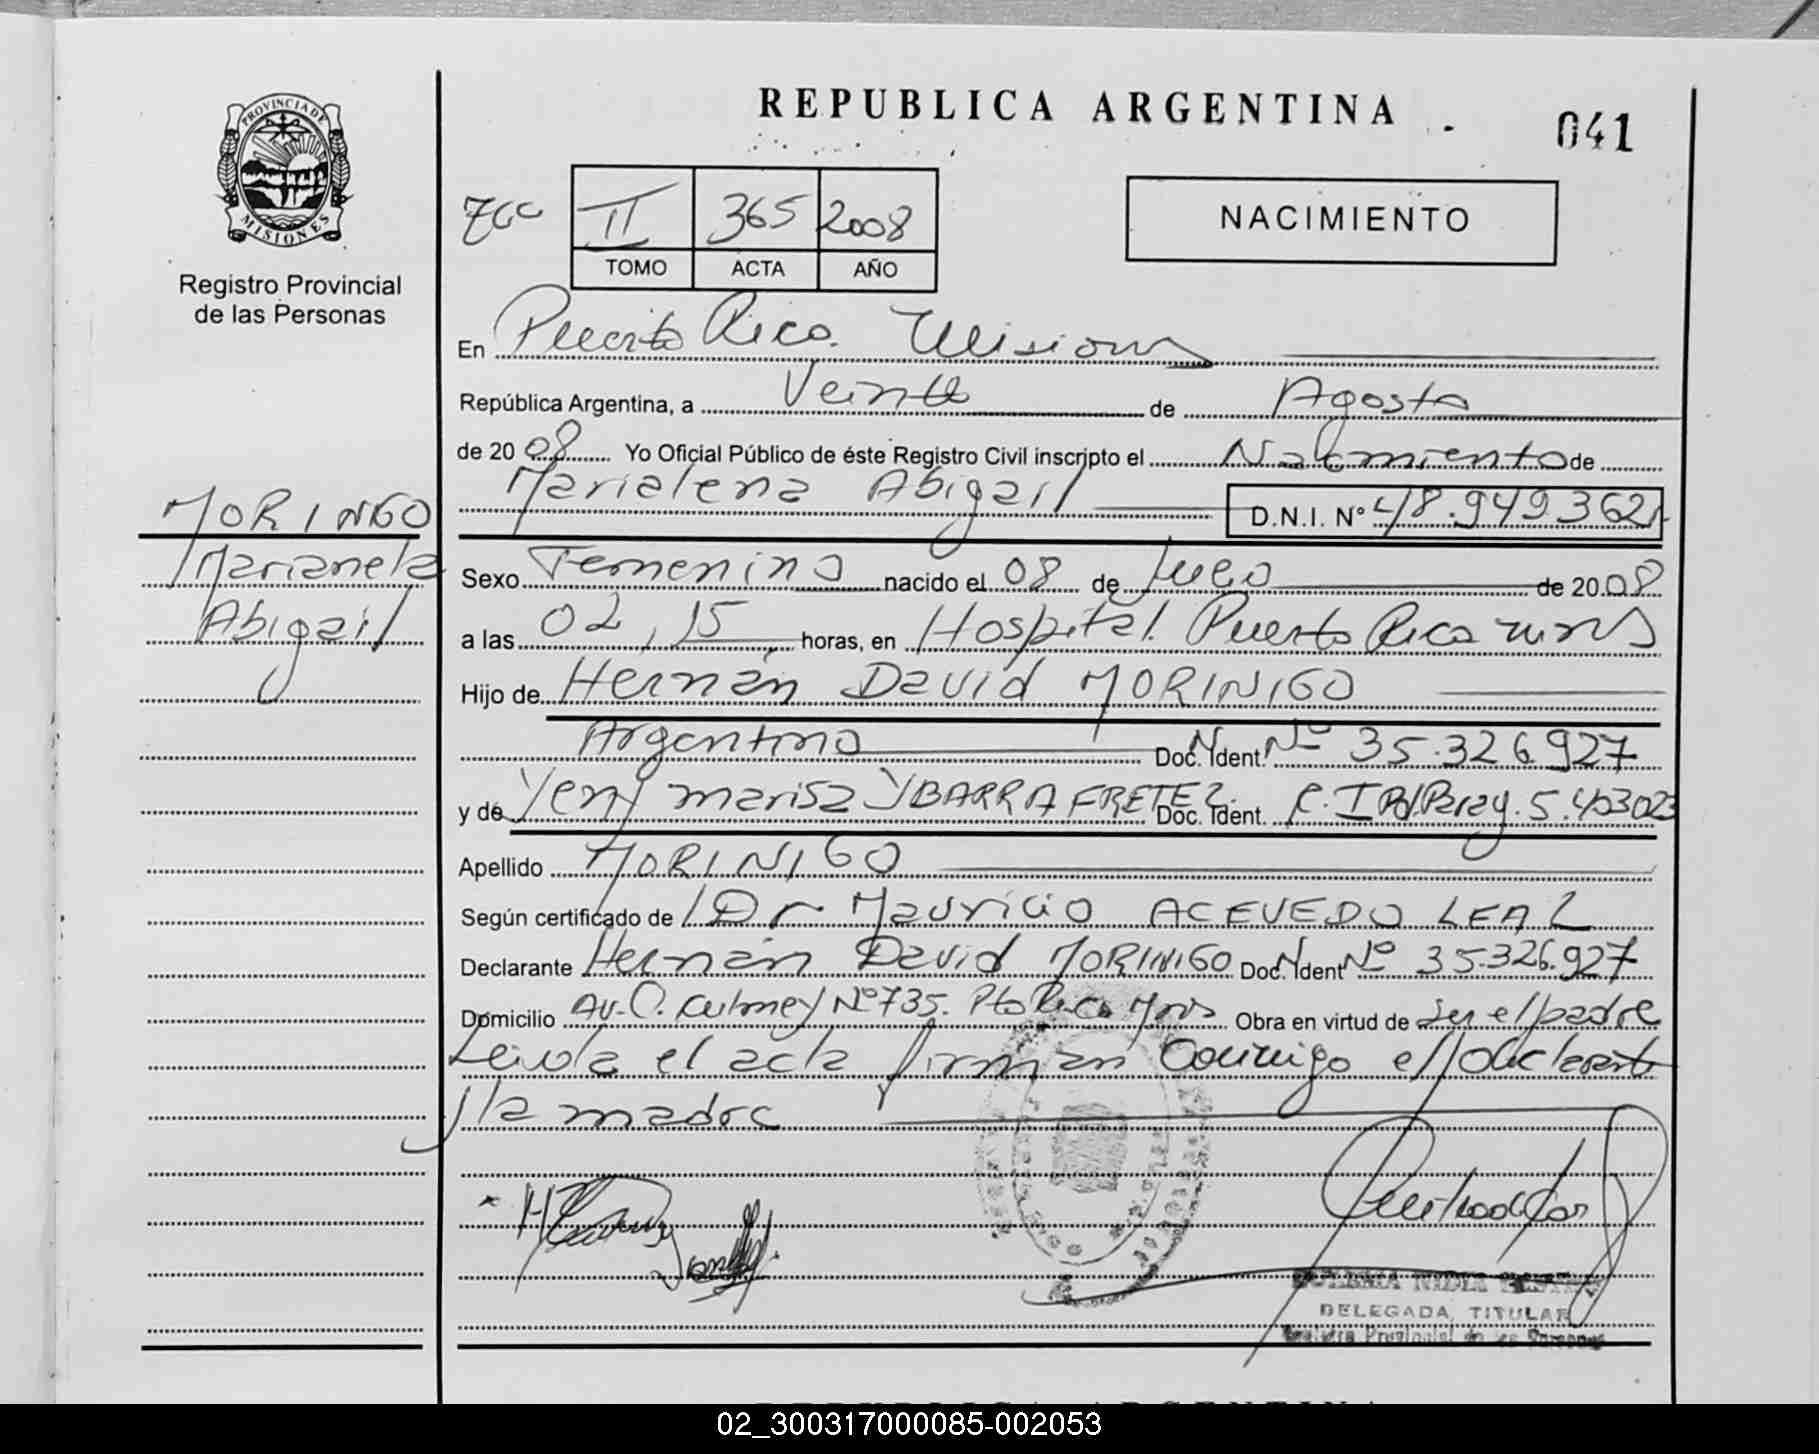 REPUBLICA ARGENTINA
041
PROVINCIA DE
MISIONES
Registro Provincial
de las Personas
II 365 2008
TOMO ACTA AÑO
NACIMIENTO
En Puerto Rico. Misiones
República Argentina, a Veinte de Agosto
de 20 08 Yo Oficial Público de éste Registro Civil inscripto el Nacimiento de
Marialena Abigail D.N.I. Nº 48.949362
MORINIGO
Marianela
Abigail
Sexo Femenino nacido el 08 de Julio de 20 08
a las 02,15 horas, en Hospital Puerto Rico Mnes
Hijo de Hernán David MORINIGO
Argentino Doc. Ident. Nº 35.326.927
y de Yeny Marisa YBARRA FRETEZ Doc. Ident. C.I Pol.Parag. 5.403023
Apellido MORINIGO
Según certificado de Dr Mauricio ACEVEDO LEAL
Declarante Hernán David MORINIGO Doc. Ident Nº 35.326.927
Domicilio Av. C. Culmey Nº 735. Pto Rico Mnes Obra en virtud de ser el padre
Leida el acta firman conmigo el declarante
y la madre
DELEGADA TITULAR
Registro Provincial de las Personas
REPUBLICA ARGENTINA
02_300317000085-002053